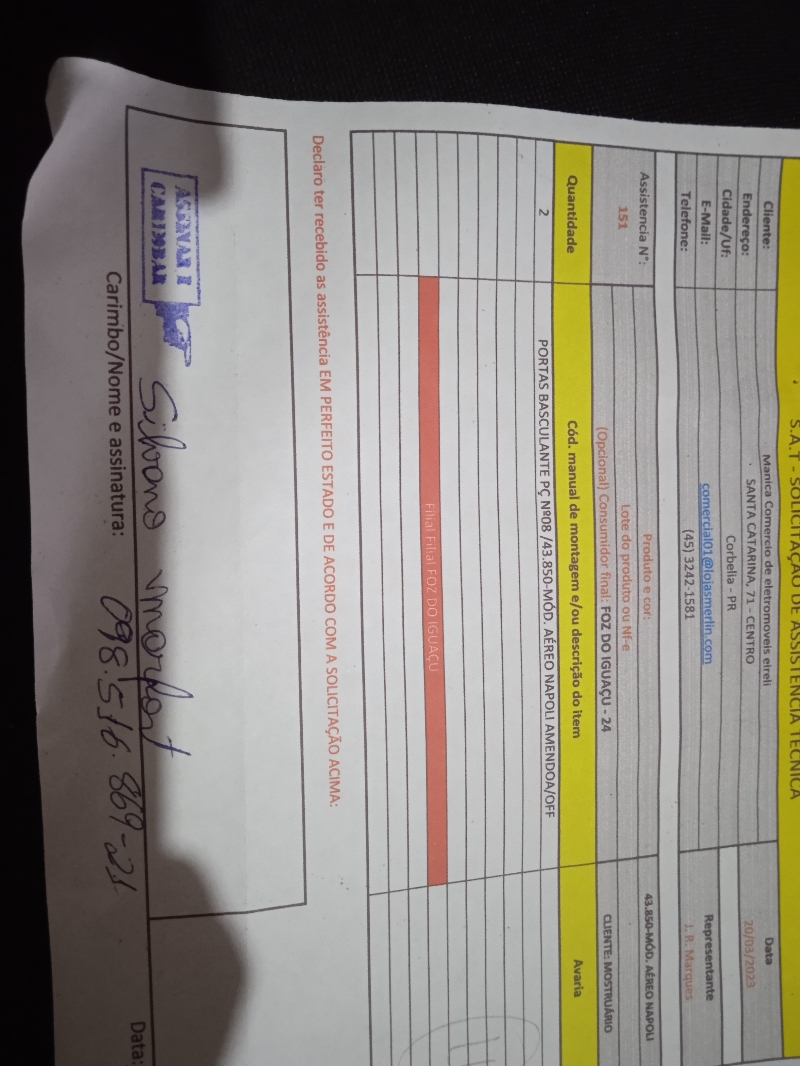 S.A.T - SOLICITAÇÃO DE ASSISTÊNCIA TÉCNICA
Cliente: Manica Comercio de eletromoveis eireli Data
Endereço: SANTA CATARINA, 71 - CENTRO 20/03/2023
Cidade/Uf: Corbelia - PR
E-Mail: comercial01@lojasmerlin.com Representante
Telefone: (45) 3242-1581 J. R. Marques
Assistencia N°: Produto e cor: 43.850-MÓD. AÉREO NAPOLI
151 Lote do produto ou Nf-e
(Opcional) Consumidor final: FOZ DO IGUAÇU - 24 CLIENTE: MOSTRUÁRIO
Quantidade Cód. manual de montagem e/ou descrição do item Avaria
2 PORTAS BASCULANTE PÇ Nº08 /43.850-MÓD. AÉREO NAPOLI AMENDOA/OFF
Filial Filial FOZ DO IGUAÇU
Declaro ter recebido as assistência EM PERFEITO ESTADO E DE ACORDO COM A SOLICITAÇÃO ACIMA:
ASSINAR E
CARIMBAR
Silvano
098.516.869-21
Carimbo/Nome e assinatura: Data: